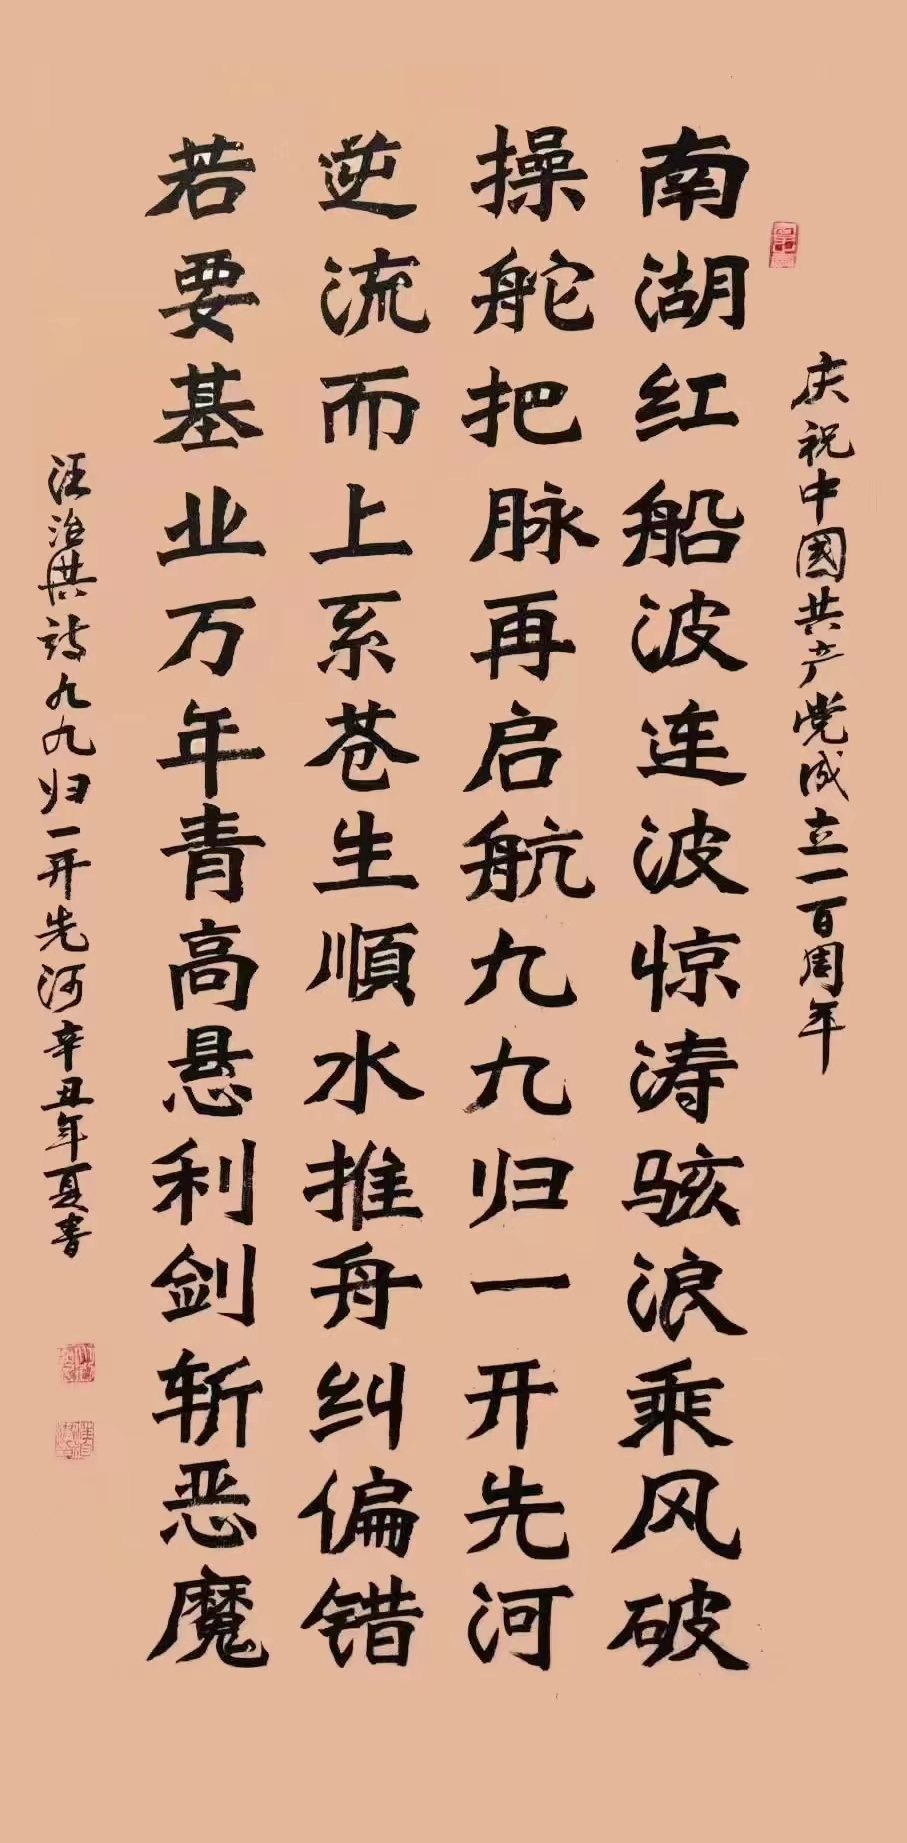 庆祝中國共产党成立一百周年
南湖红船波连波惊涛骇浪乘风破
操舵把脉再启航九九归一开先河
逆流而上系苍生順水推舟纠偏错
若要基业万年青高悬利剑斩恶魔
汪治洪诗九九归一开先河辛丑年夏書